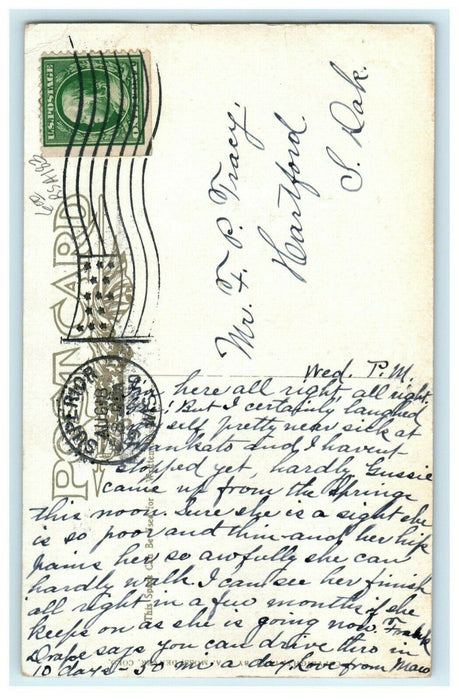 U.S. POSTAGE
POST CARD
SUPERIOR
AUG 18
WIS.
Mr. F. P. Tracy,
Hartford
S. Dak.
Wed. P.M.
here all right, all right,
But I certainly laughed
self pretty near sick at
Mankato and I havent
stopped yet, hardly Gussie
came up from the Springs
this noon. Sure she is a sight she
is so poor and thin and her hip
pains her so awfully she can
hardly walk. I can see her finish
all right in a few months if she
keeps on as she is going now. Frank
Drake says you can drive thro in
10 days - 30 mi a day. Love from Maw